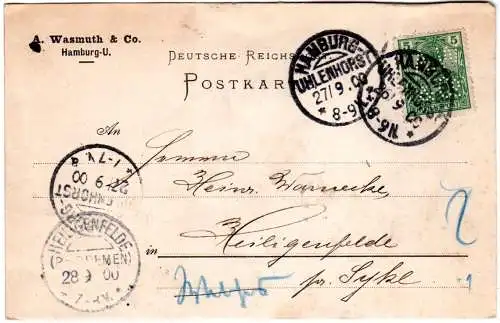 A. Wasmuth & Co.
Hamburg-U.
DEUTSCHE REICHS
POSTKAR
HAMBURG-
UHLENHORST
27/9.00
* 8-9
5
An
Herrn
Heinr. Warnecke,
Heiligenfelde
in
pr. Syke
1-7N.
27 9 00
HEILIGENFELDE
(BZ. BREMEN)
28 9 00
2